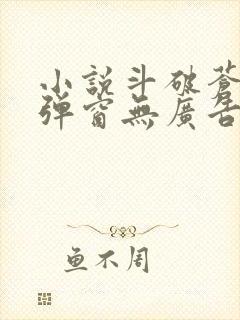 小說斗破蒼
彈窗無廣告
鱼不周